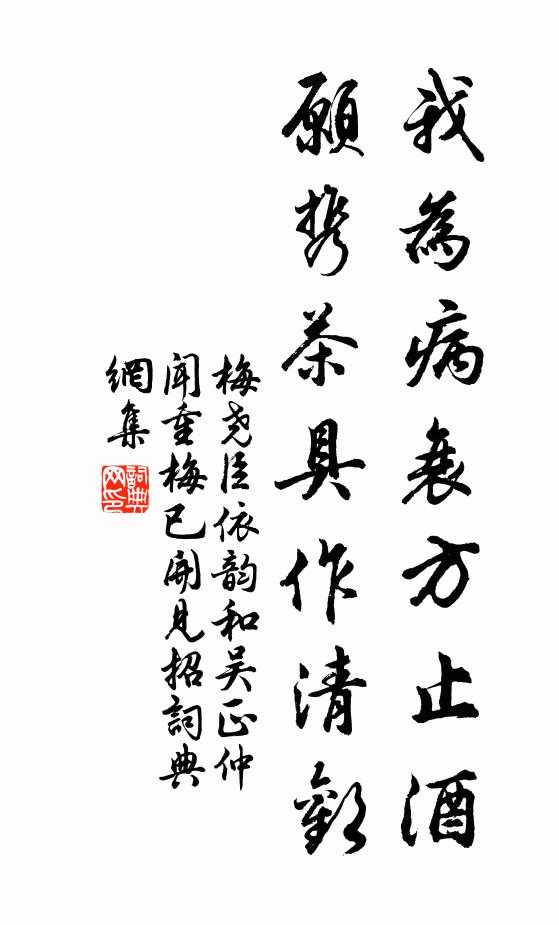 我為病衰方止酒
願携茶具作清歡
梅尧臣依韵和吴正仲
聞重梅已開見招詞典
網集
詞典网印